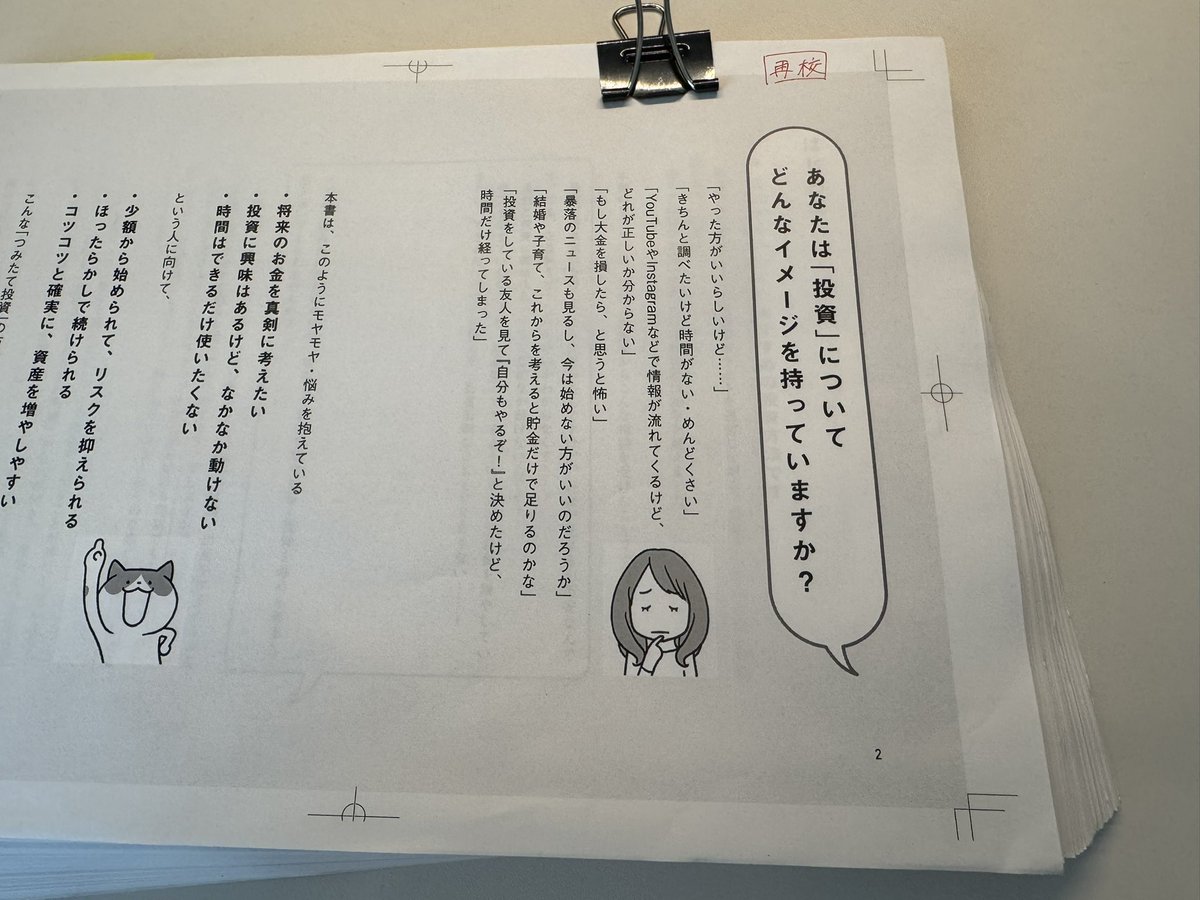 再校
あなたは「投資」について
どんなイメージを持っていますか？
「やった方がいいらしいけど……」
「きちんと調べたいけど時間がない・めんどくさい」
「YouTubeやInstagramなどで情報が流れてくるけど、
どれが正しいか分からない」
「もし大金を損したら、と思うと怖い」
「暴落のニュースも見るし、今は始めない方がいいのだろうか」
「結婚や子育て、これからを考えると貯金だけで足りるのかな」
「投資をしている友人を見て『自分もやるぞ！』と決めたけど、
時間だけ経ってしまった」
本書は、このようにモヤモヤ・悩みを抱えている
・将来のお金を真剣に考えたい
・投資に興味はあるけど、なかなか動けない
・時間はできるだけ使いたくない
という人に向けて、
・少額から始められて、リスクを抑えられる
・ほったらかしで続けられる
・コツコツと確実に、資産を増やしやすい
こんな「つみたて投資」の
2